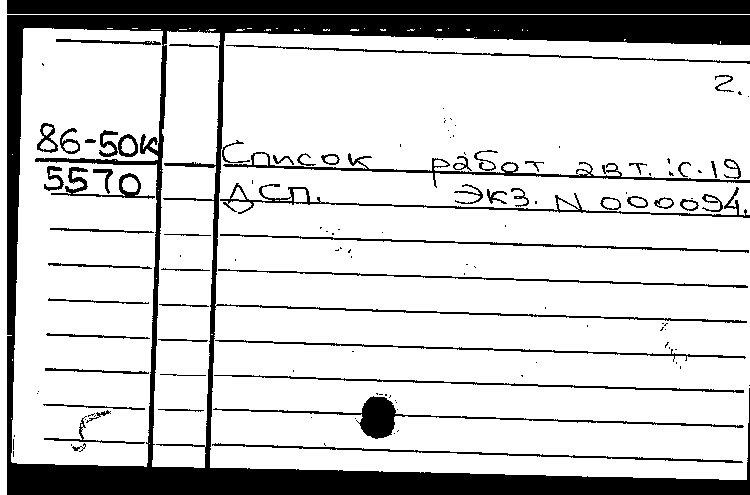 2.
86-50К
5570
Список работ авт. :С.19
ДСП. Экз. N 000094.